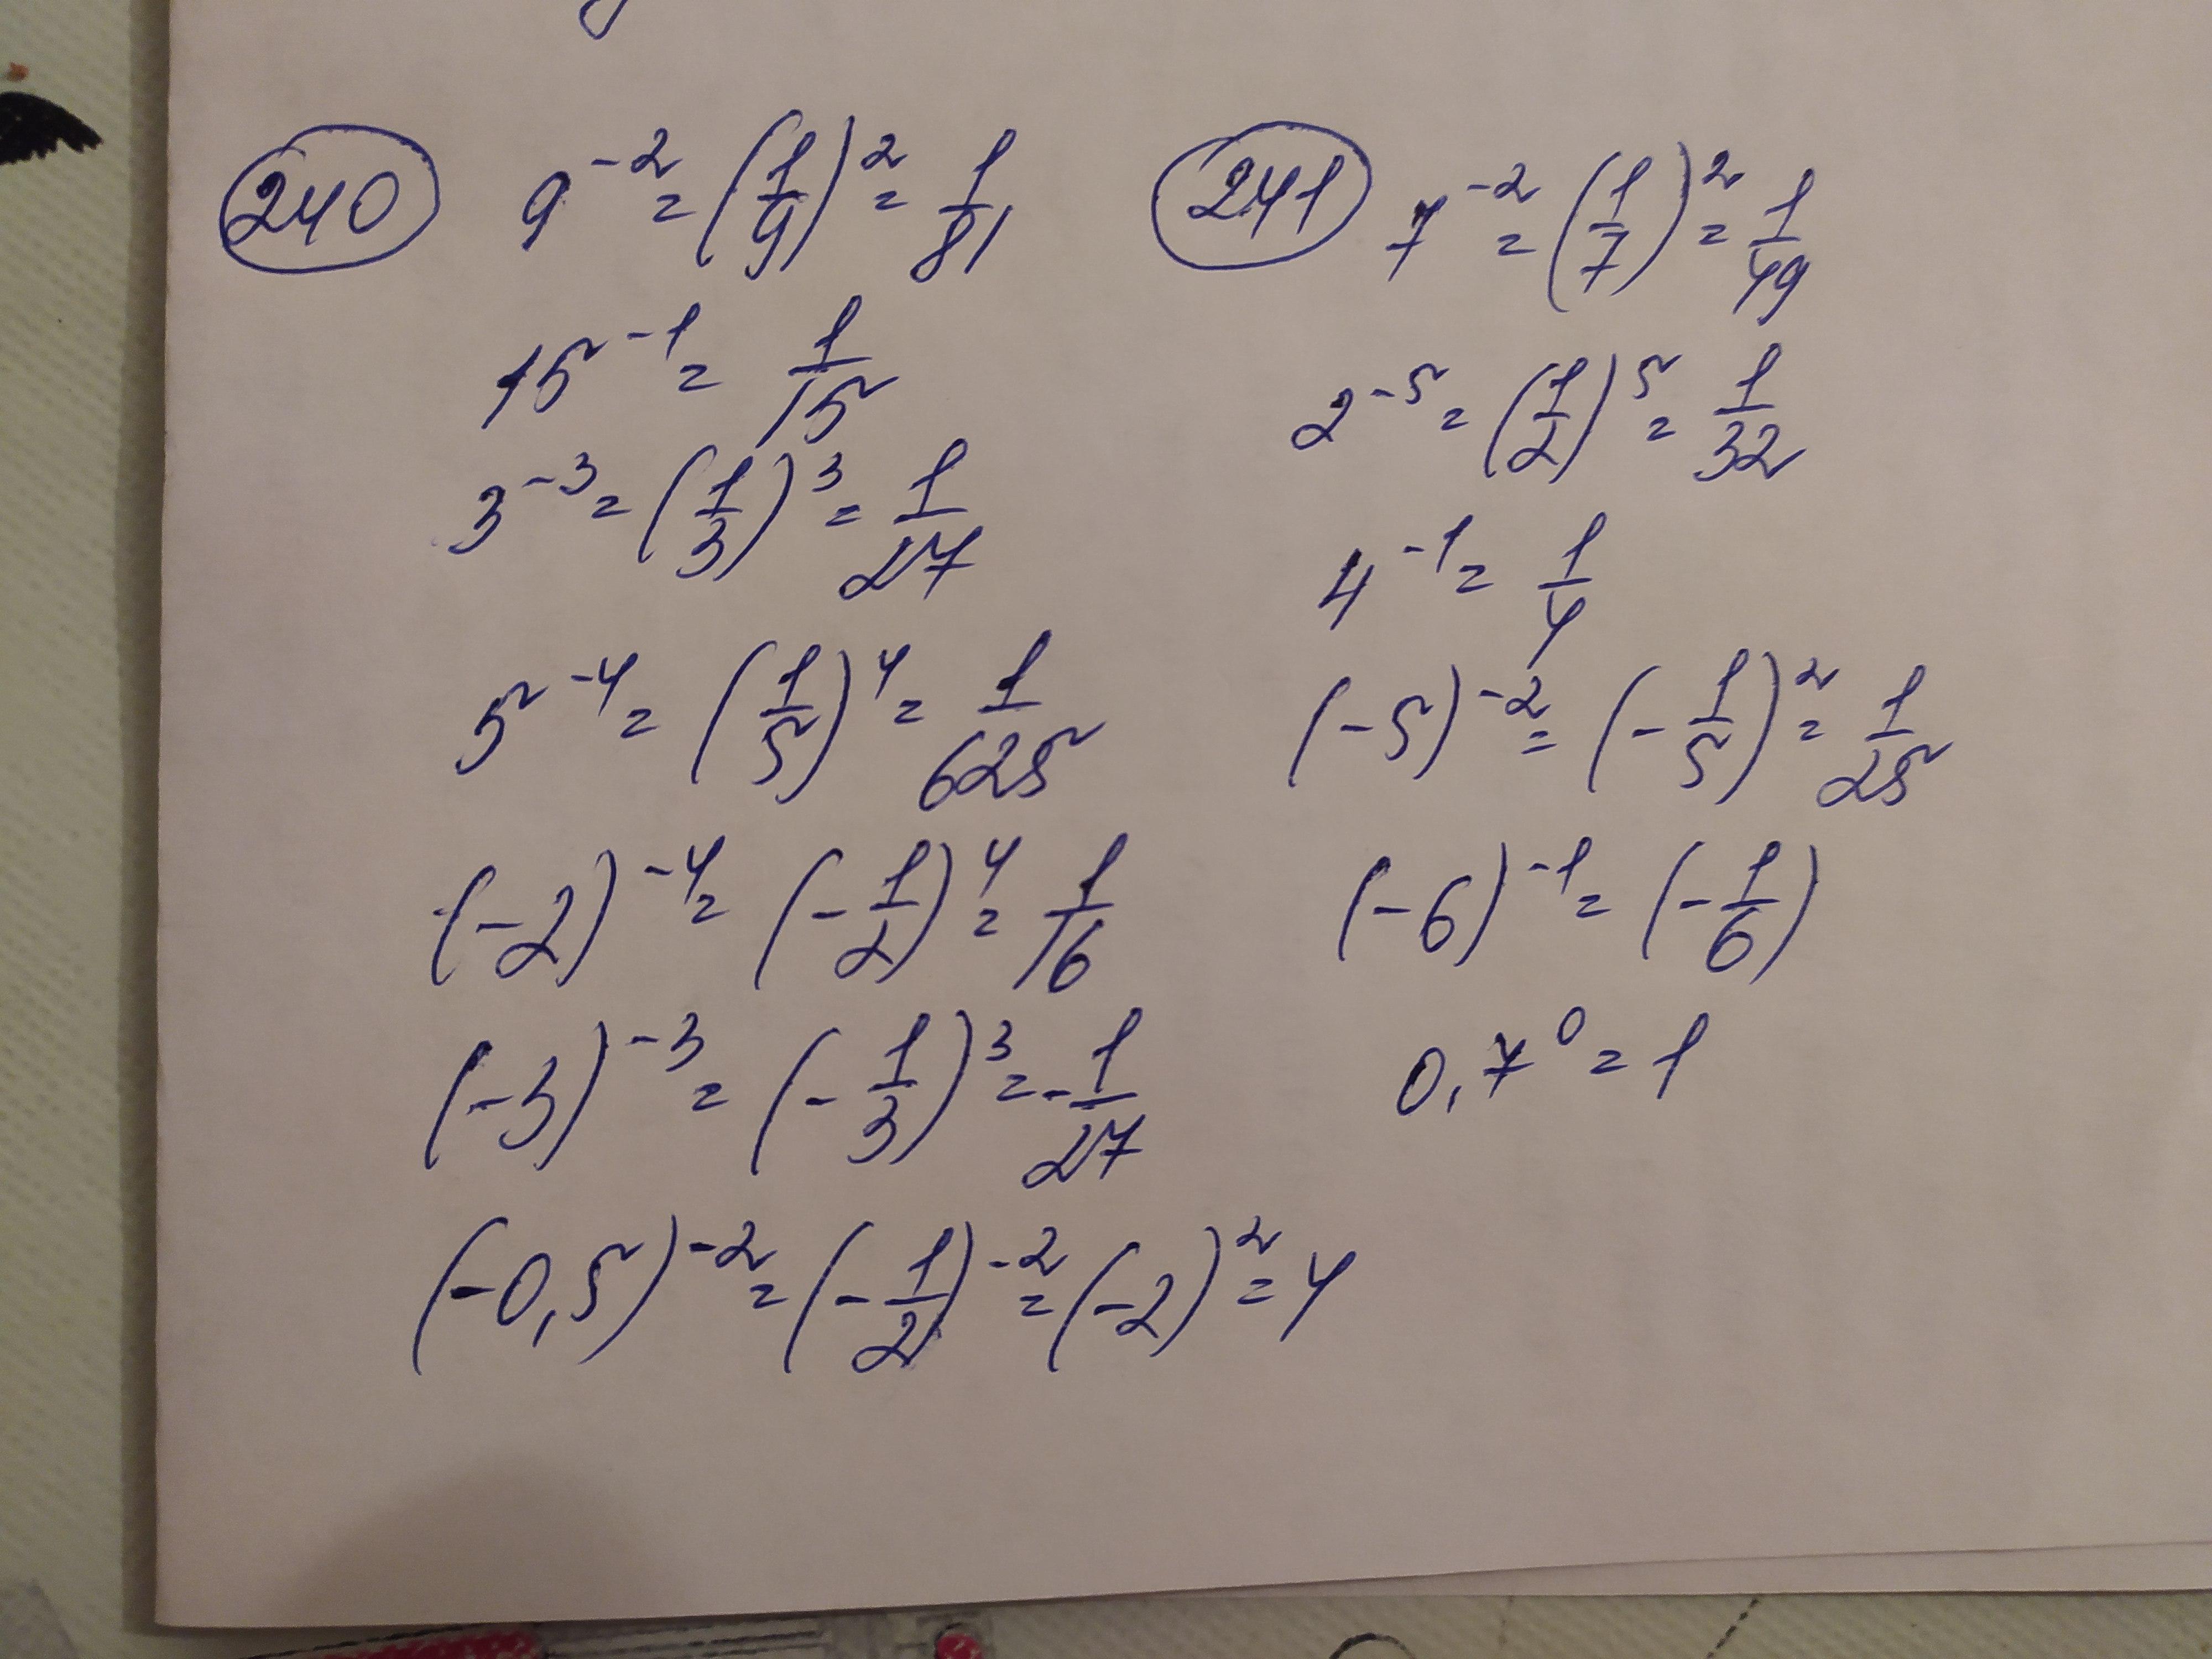 240
9⁻² = (1/9)² = 1/81
15⁻¹ = 1/15
3⁻³ = (1/3)³ = 1/27
5⁻⁴ = (1/5)⁴ = 1/625
(-2)⁻⁴ = (-1/2)⁴ = 1/16
(-3)⁻³ = (-1/3)³ = -1/27
(-0,5)⁻² = (-1/2)⁻² = (-2)² = 4
241
7⁻² = (1/7)² = 1/49
2⁻⁵ = (1/2)⁵ = 1/32
4⁻¹ = 1/4
(-5)⁻² = (-1/5)² = 1/25
(-6)⁻¹ = (-1/6)
0,7⁰ = 1